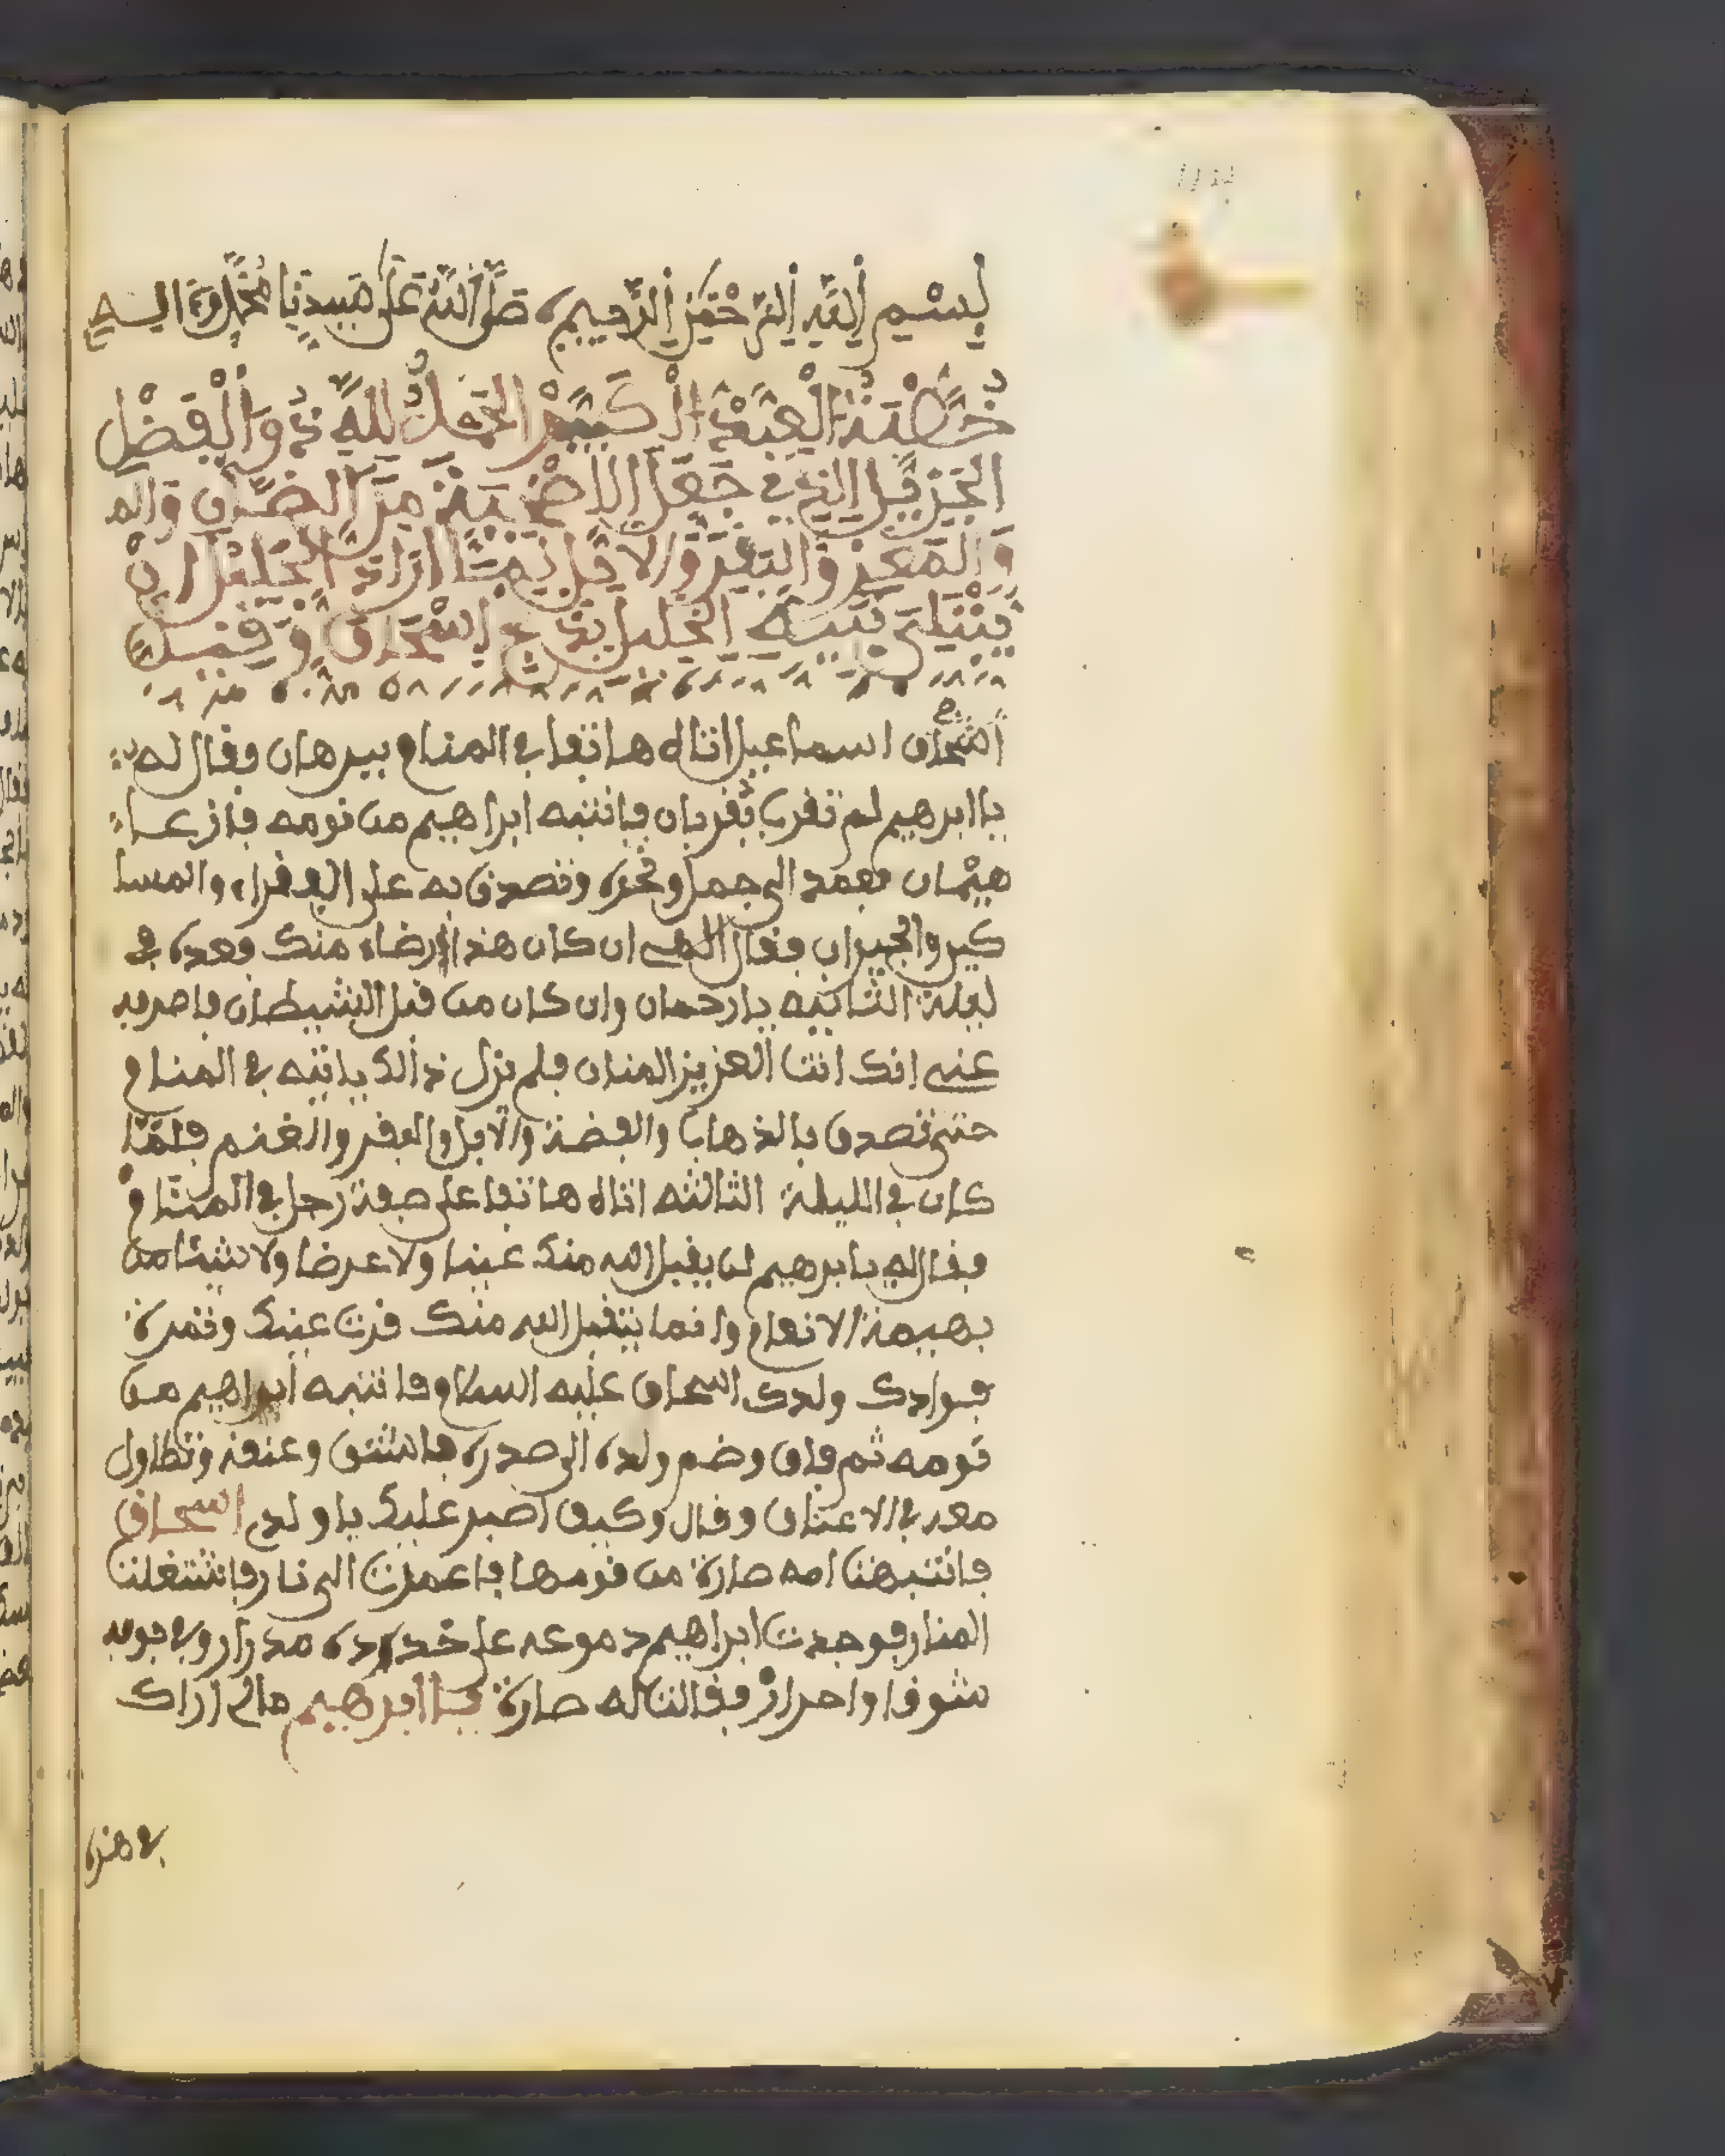 بِسْمِ اَللَّهِ اِلرَّحْمَٰنِ اِلرَّحِيمِ صَلَّى اَللَّهُ عَلَى سَيِّدِنَا مُحَمَّدٍ وَءَالِهِ
خُطْبَةُ الْعِيدِ الْكَبِيرِ الْحَمْدُ لِلَّهِ ذِي وَالْفَضْلِ
الْجَزِيلِ الذِي جَعَلَ الاضْحِيَةَ مِنَ الضَّأْنِ وَالم
وَالْمَعِزِ وَالْبَقَرِ وَالابِلِ لَمَّا ارَادَ الْجَلِيلُ انْ
يَبْتَلِي نَبِيَّهُ الْخَلِيلَ بِذَبْحِ اسْحَاقَ وَقِيلَ
اسحاق اسماعيل اتاه هاتفا في المنام ببرهان وقال له
يا ابرهيم لم تقرب بقربان فانتبه ابراهيم من نومه فازعا
هيمان فعمد الى جمل ونحره وتصدق به على الفقراء والمسا
كين والجيران وقال الهي ان كان هذا ارضاء منك فعده في
ليلة الثانيه يا رحمان وان كان من قبل الشيطان فاصرفه
عني انك انتا العزيز المنان فلم تزل ذالك ياتيه في المنام
حتى تصدق بالذهاب والفضة والابل والبقر والغنم فلما
كان في الليلة الثالثه اتاه هاتفا على صفة رجل في المنام
فقال له يابرهيم لن يقبل الله منك عينا ولا عرضا ولا شيئا من
بهيمة الانعام وانما يتقبل الله منك قرت عينك وثمرة
فوادك ولدك اسحاق عليه السلام فانتبه ابراهيم من
نومه ثم فاق وضم ولده الى صدره فاشتق وعنقه وتطاول
معه في الاعتناق وقال وكيف اصبر عليك يا ولدي اسحاق
فانتبهتا امه صارة من نومها فاعمدت الى نار فاشتعلتا
النار فوجدت ابراهيم دموعه على خدوده مدرار وفي جوفه
شوقا واحرار فقالتا له صارة يا ابرهيم مالي اراك
في هذه